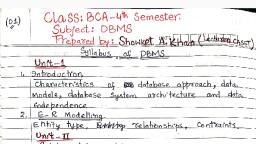 (01)
Class: BCA-4th Semester.
Subject: DBMS
Prepared by: Showket A. Khan (Lecturer
Syllabus of DBMS
Unit-1
1. Introduction
Characteristics of database approach, data
Models, database system architecture and data
independence
2. E-R Modelling
Entity type relationships, Contraints,
Unit-II